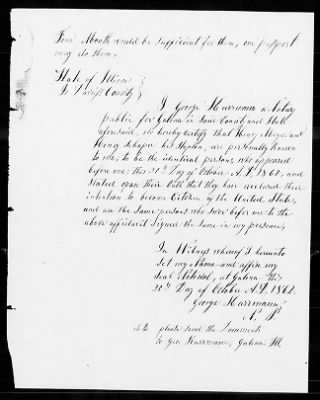 Four Month would be sufficient for them, one passport
may do them.
State of Illinois }
Jo Daviess County }
I George Herrmann a Notary
public for Galena in Said County and State
aforesaid, do hereby certify that Henry
Henry Schaper his Stepson, are personally known
to me, to be the identical persons, who appeared
before me this 30th Day of October A.D. 1862, and
stated upon their Oath that they have declared their
intention to become Citizens of the United States,
and are the Same persons who swore before me to the
above affidavit & signed the same in my presence,
In Witness whereof I hereunto
Set my Name and affixe my
Seal Notarial, at Galena this
30th Day of October A.D. 1862.
George Herrmann,
N. P.
please send the Documents
to Geo. Herrmann, Galena Ill.